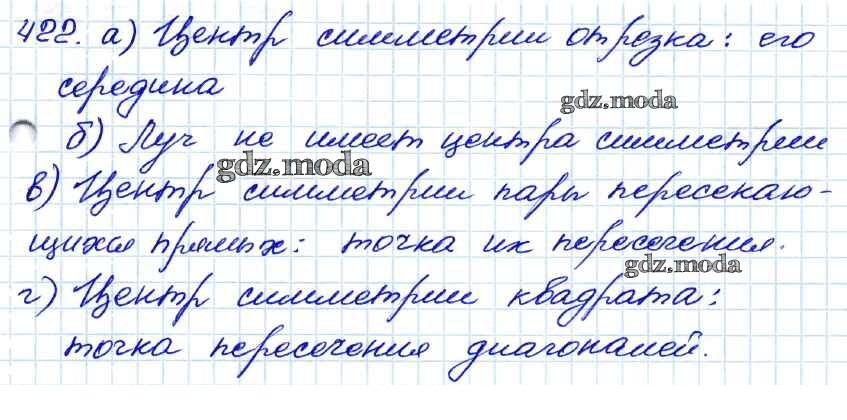 422. а) Центр симметрии отрезка: его
середина
gdz.moda
б) Луч не имеет центра симметрии
gdz.moda
в) Центр симметрии пары пересекаю-
щихся прямых: точка их пересечения.
gdz.moda
г) Центр симметрии квадрата:
точка пересечения диагоналей.